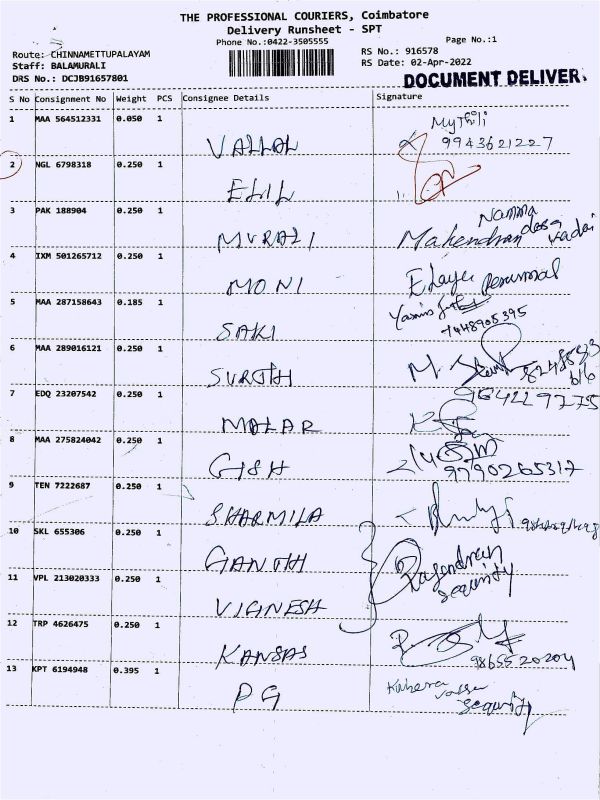 THE PROFESSIONAL COURIERS, Coimbatore
Delivery Runsheet - SPT
Phone No.:0422-3505555
Page No.:1
Route: CHINNAMETTUPALAYAM
RS No.: 916578
Staff: BALAMURALI
RS Date: 02-Apr-2022
DRS No.: DCJB91657801
DOCUMENT DELIVER.
S No Consignment No Weight PCS Consignee Details Signature
1 MAA 564512331 0.050 1 VALLAL Mythili
9943621227
2 NGL 6798318 0.250 1 ELIL
3 PAK 188904 0.250 1 MURALI Mahendran Namma
4 IXM 501265712 0.250 1 MONI Elaya Perumal
5 MAA 287158643 0.185 1 SAKI
7448905395
6 MAA 289016121 0.250 1 SURTHH
7 EDQ 23207542 0.250 1 MALAR
8 MAA 275824042 0.250 1 GISH
9790265317
9 TEN 7222687 0.250 1 SHARMILA
10 SKL 655306 0.250 1 GANTHH Rajendran
Sequrity
11 VPL 213020333 0.250 1 VIGINESH
12 TRP 4626475 0.250 1 KANSAS
9865520204
13 KPT 6194948 0.395 1 PG
Sequrity